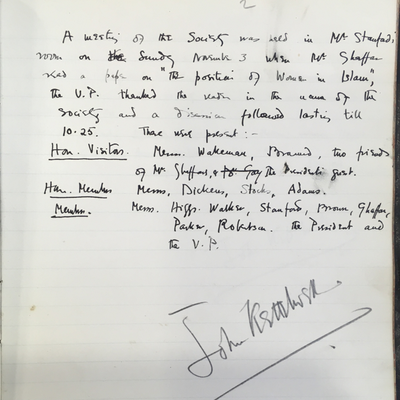 2
A meeting of the Society was held in Mr Stanford's
room on Sunday November 3 when Mr Ghaffar
read a paper on "the position of Women in Islam",
the V.P. thanked the reader in the name of the
society and a discussion followed lasting till
10.25. There were present :-
Hon. Visitors. Messrs. Wakeman, two friends
of Mr Ghaffar's, & the President's guest.
Hon. Members Messrs, Dickens, Stocks, Adams.
Members. Messrs. Higgs, Walker, Stanford, Brown, Ghaffar,
Parker, Robertson. the President and
the V.P.
John